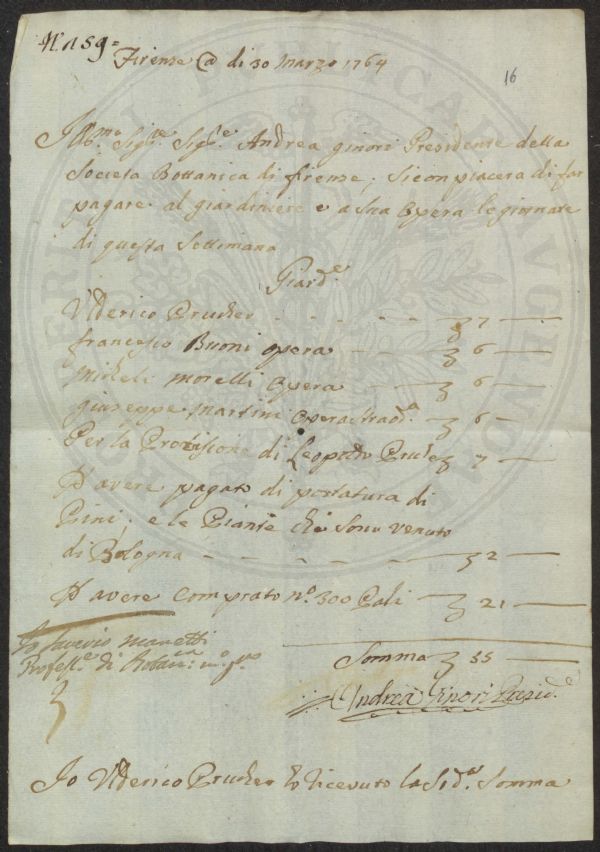 Firenze @ di 30 Marzo 1764
16
Ill.mo Sig.re Sig.re Andrea ginori Presidente della
Societa Bottanica di firenze; si conpiacera di far
pagare al giardiniere e a sua Opera le giornate
di questa Settimana
Giard.e
Vlderico Prucker - - - - - - - 7 —
francescho Buoni opera - - - 6 —
Micheli Morelli Opera - - - 6 —
giuseppe Martini Opera straod.a - 6 —
Per la Provisione di Leopoldo Prucke 7 —
P avere pagato di portatura di
Pini, e le Piante che sono venuto
di Bologna - - - - - - 2 —
P avere comprato n.o 300 Pali — 21 —
Io Saverio Manetti
Profess.e di Botan.ca m.o p.o
Somma 55 —
Andrea Ginori Presid.e
Io Vlderico Prucker ho ricevuto la Sid.a Somma